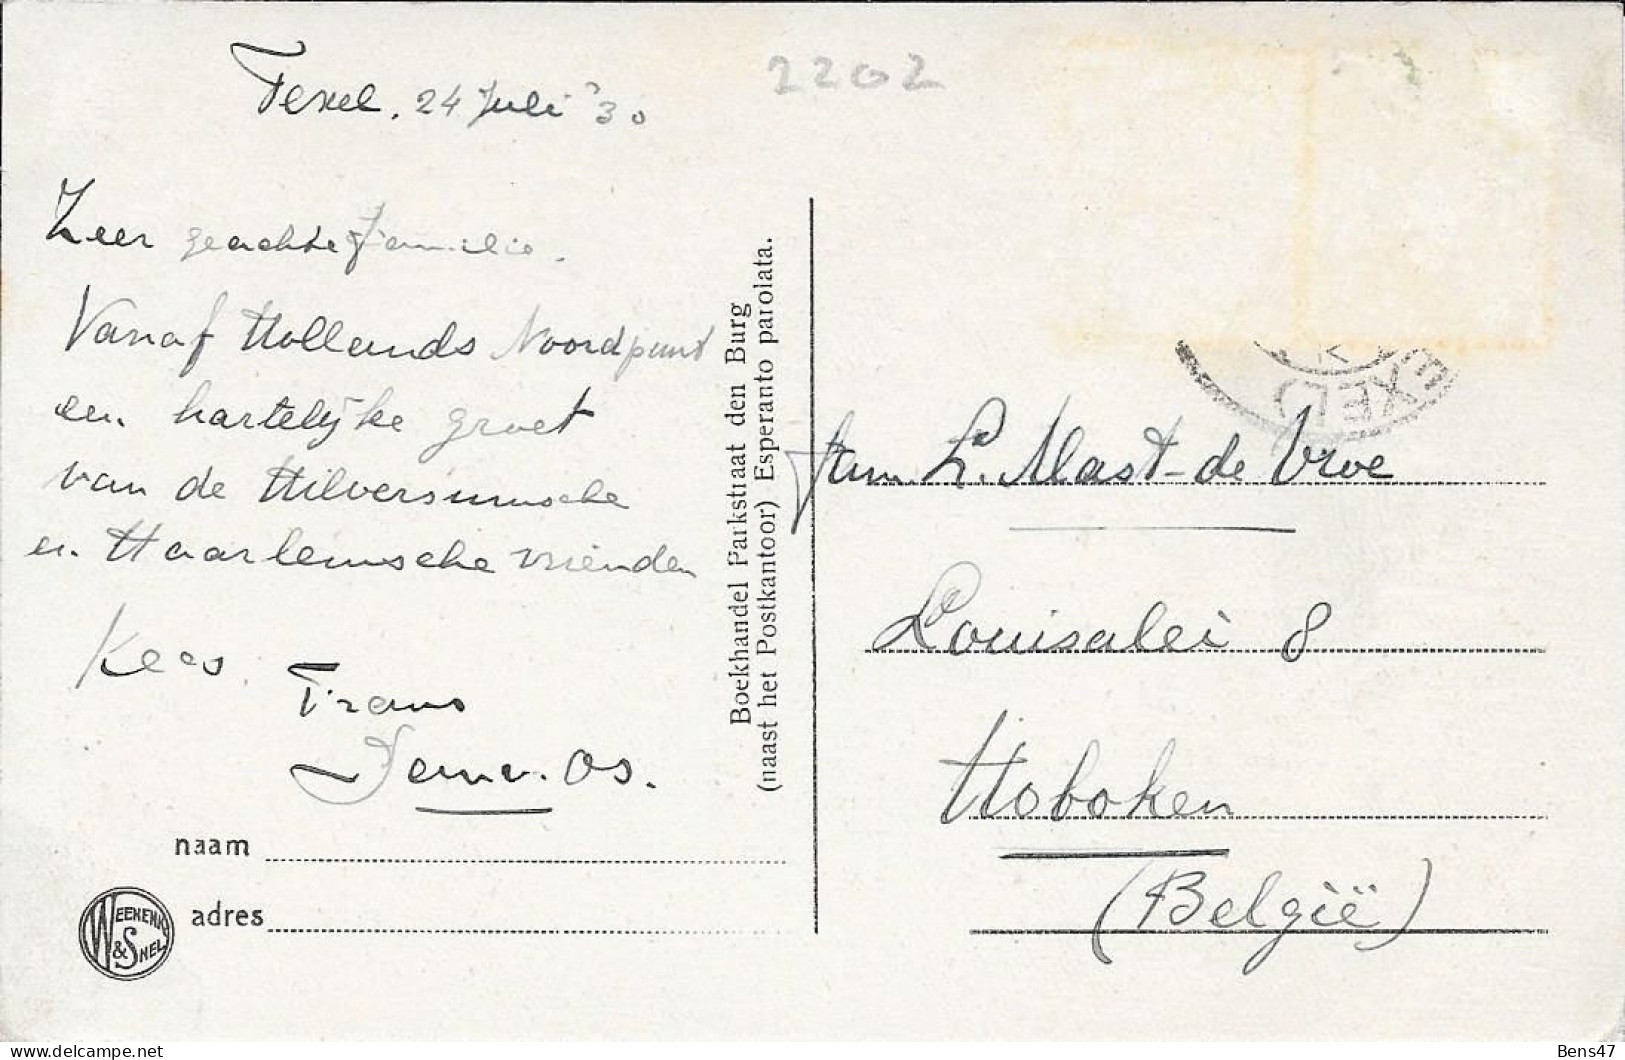 2202
Texel. 24 Juli '30
Zeer geachte familie.
Vanaf Hollands Noordpunt
een hartelijke groet
van de Hilversumsche
en Haarlemsche vrienden
Kees.
Frans
Os.
naam
adres
WEENENK & SNEL
Boekhandel Parkstraat den Burg
(naast het Postkantoor) Esperanto parolata.
TEXEL)
Fam. L. Mast-de Vroe
Louisalei 8
Hoboken
(België)
Bens47
delcampe.net